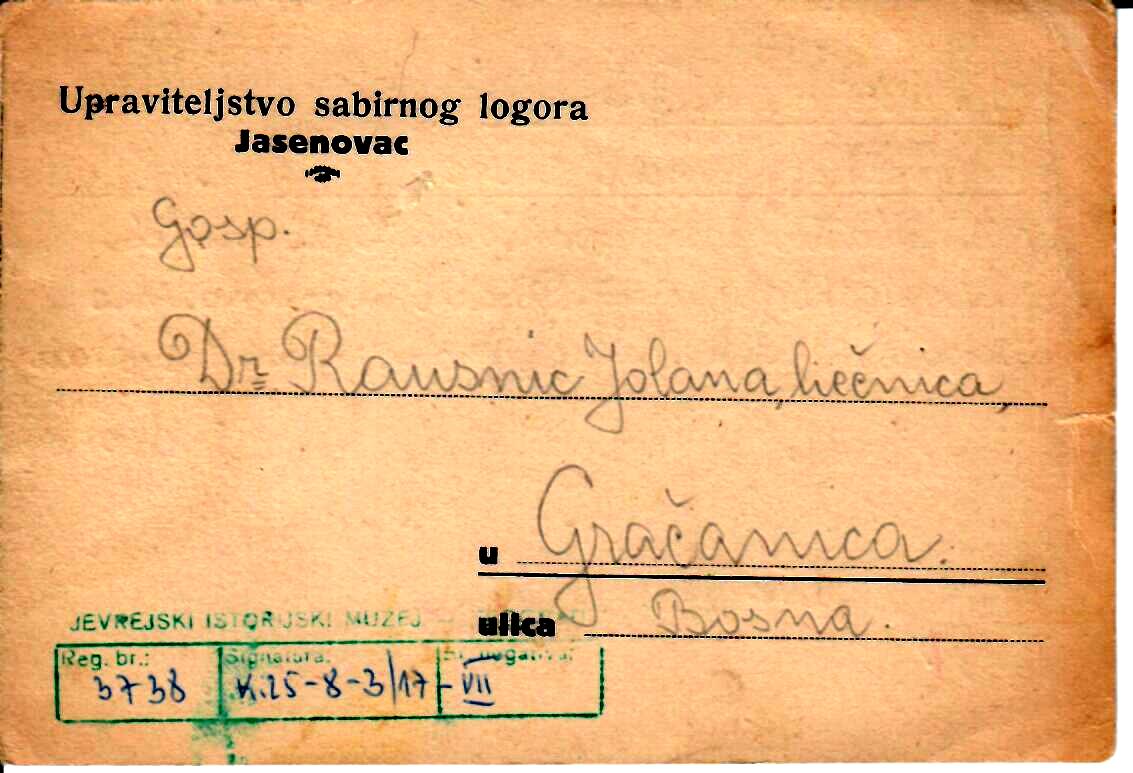 Upraviteljstvo sabirnog logora
Jasenovac
Gosp.
Dr Rausnic Jolana, liečnica,
u Gračanica.
ulica Bosna.
JEVREJSKI ISTORIJSKI MUZEJ
Reg. br.: Signatura: Br. negativa:
3738 K.25-8-3/17-VII